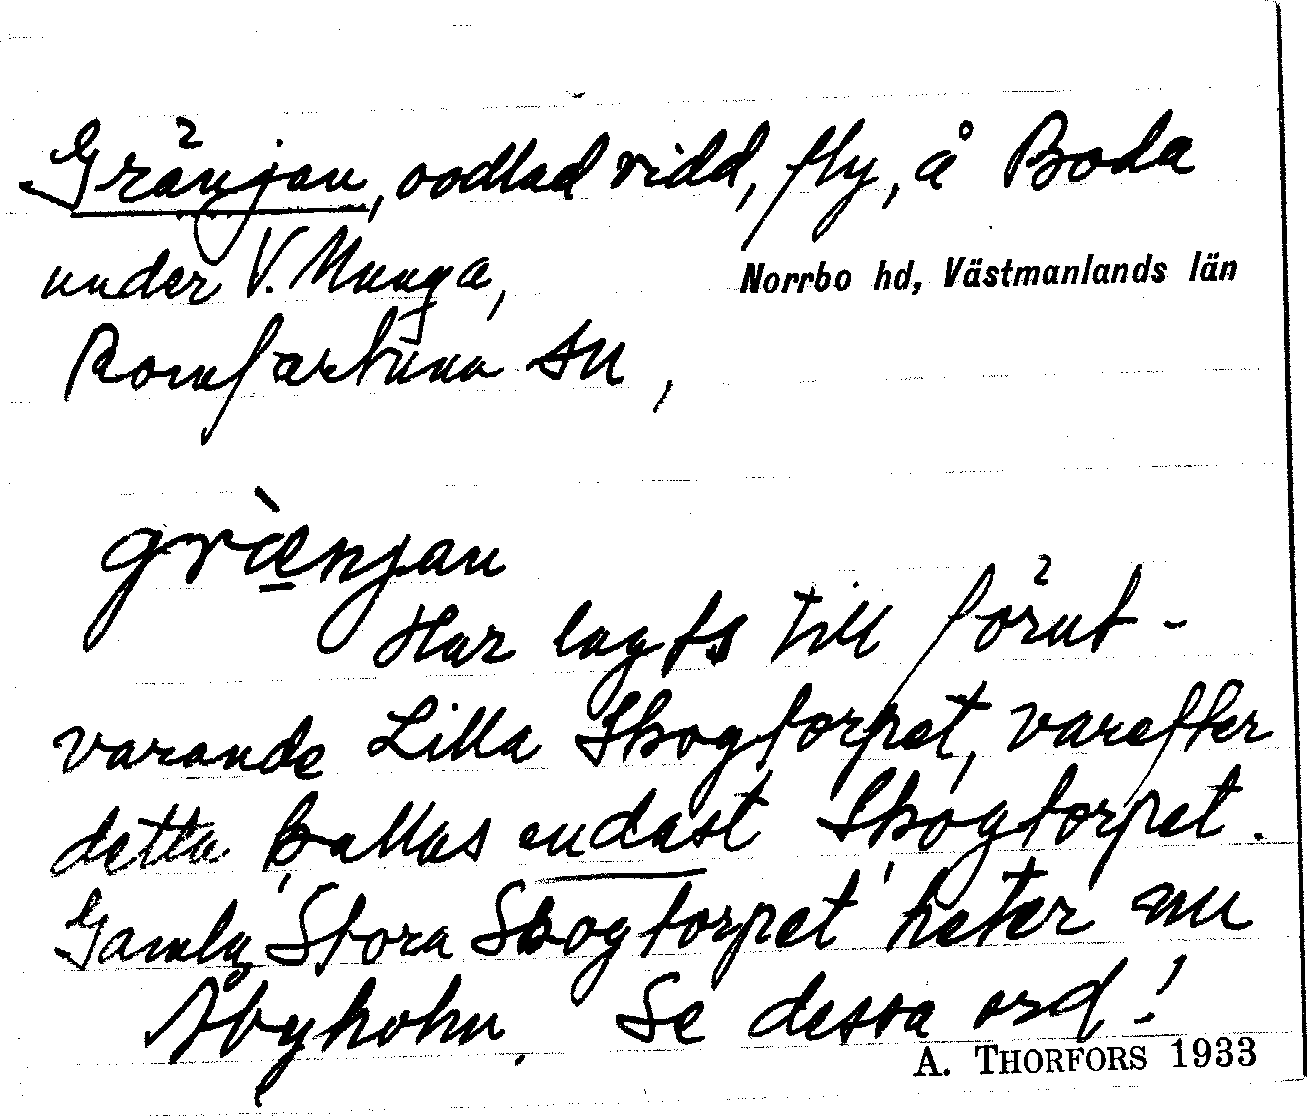 Gränjan, oodlad vidd, fly, å Boda
under V. Munga,
Norrbo hd, Västmanlands län
Romfartuna sn,
græ̀njan
Har lagts till förut-
varande Lilla Skogtorpet, varefter
detta kallas endast Skogtorpet.
Gamla Stora Skogtorpet heter nu
Åbyholm. Se dessa ord!
A. THORFORS 1933